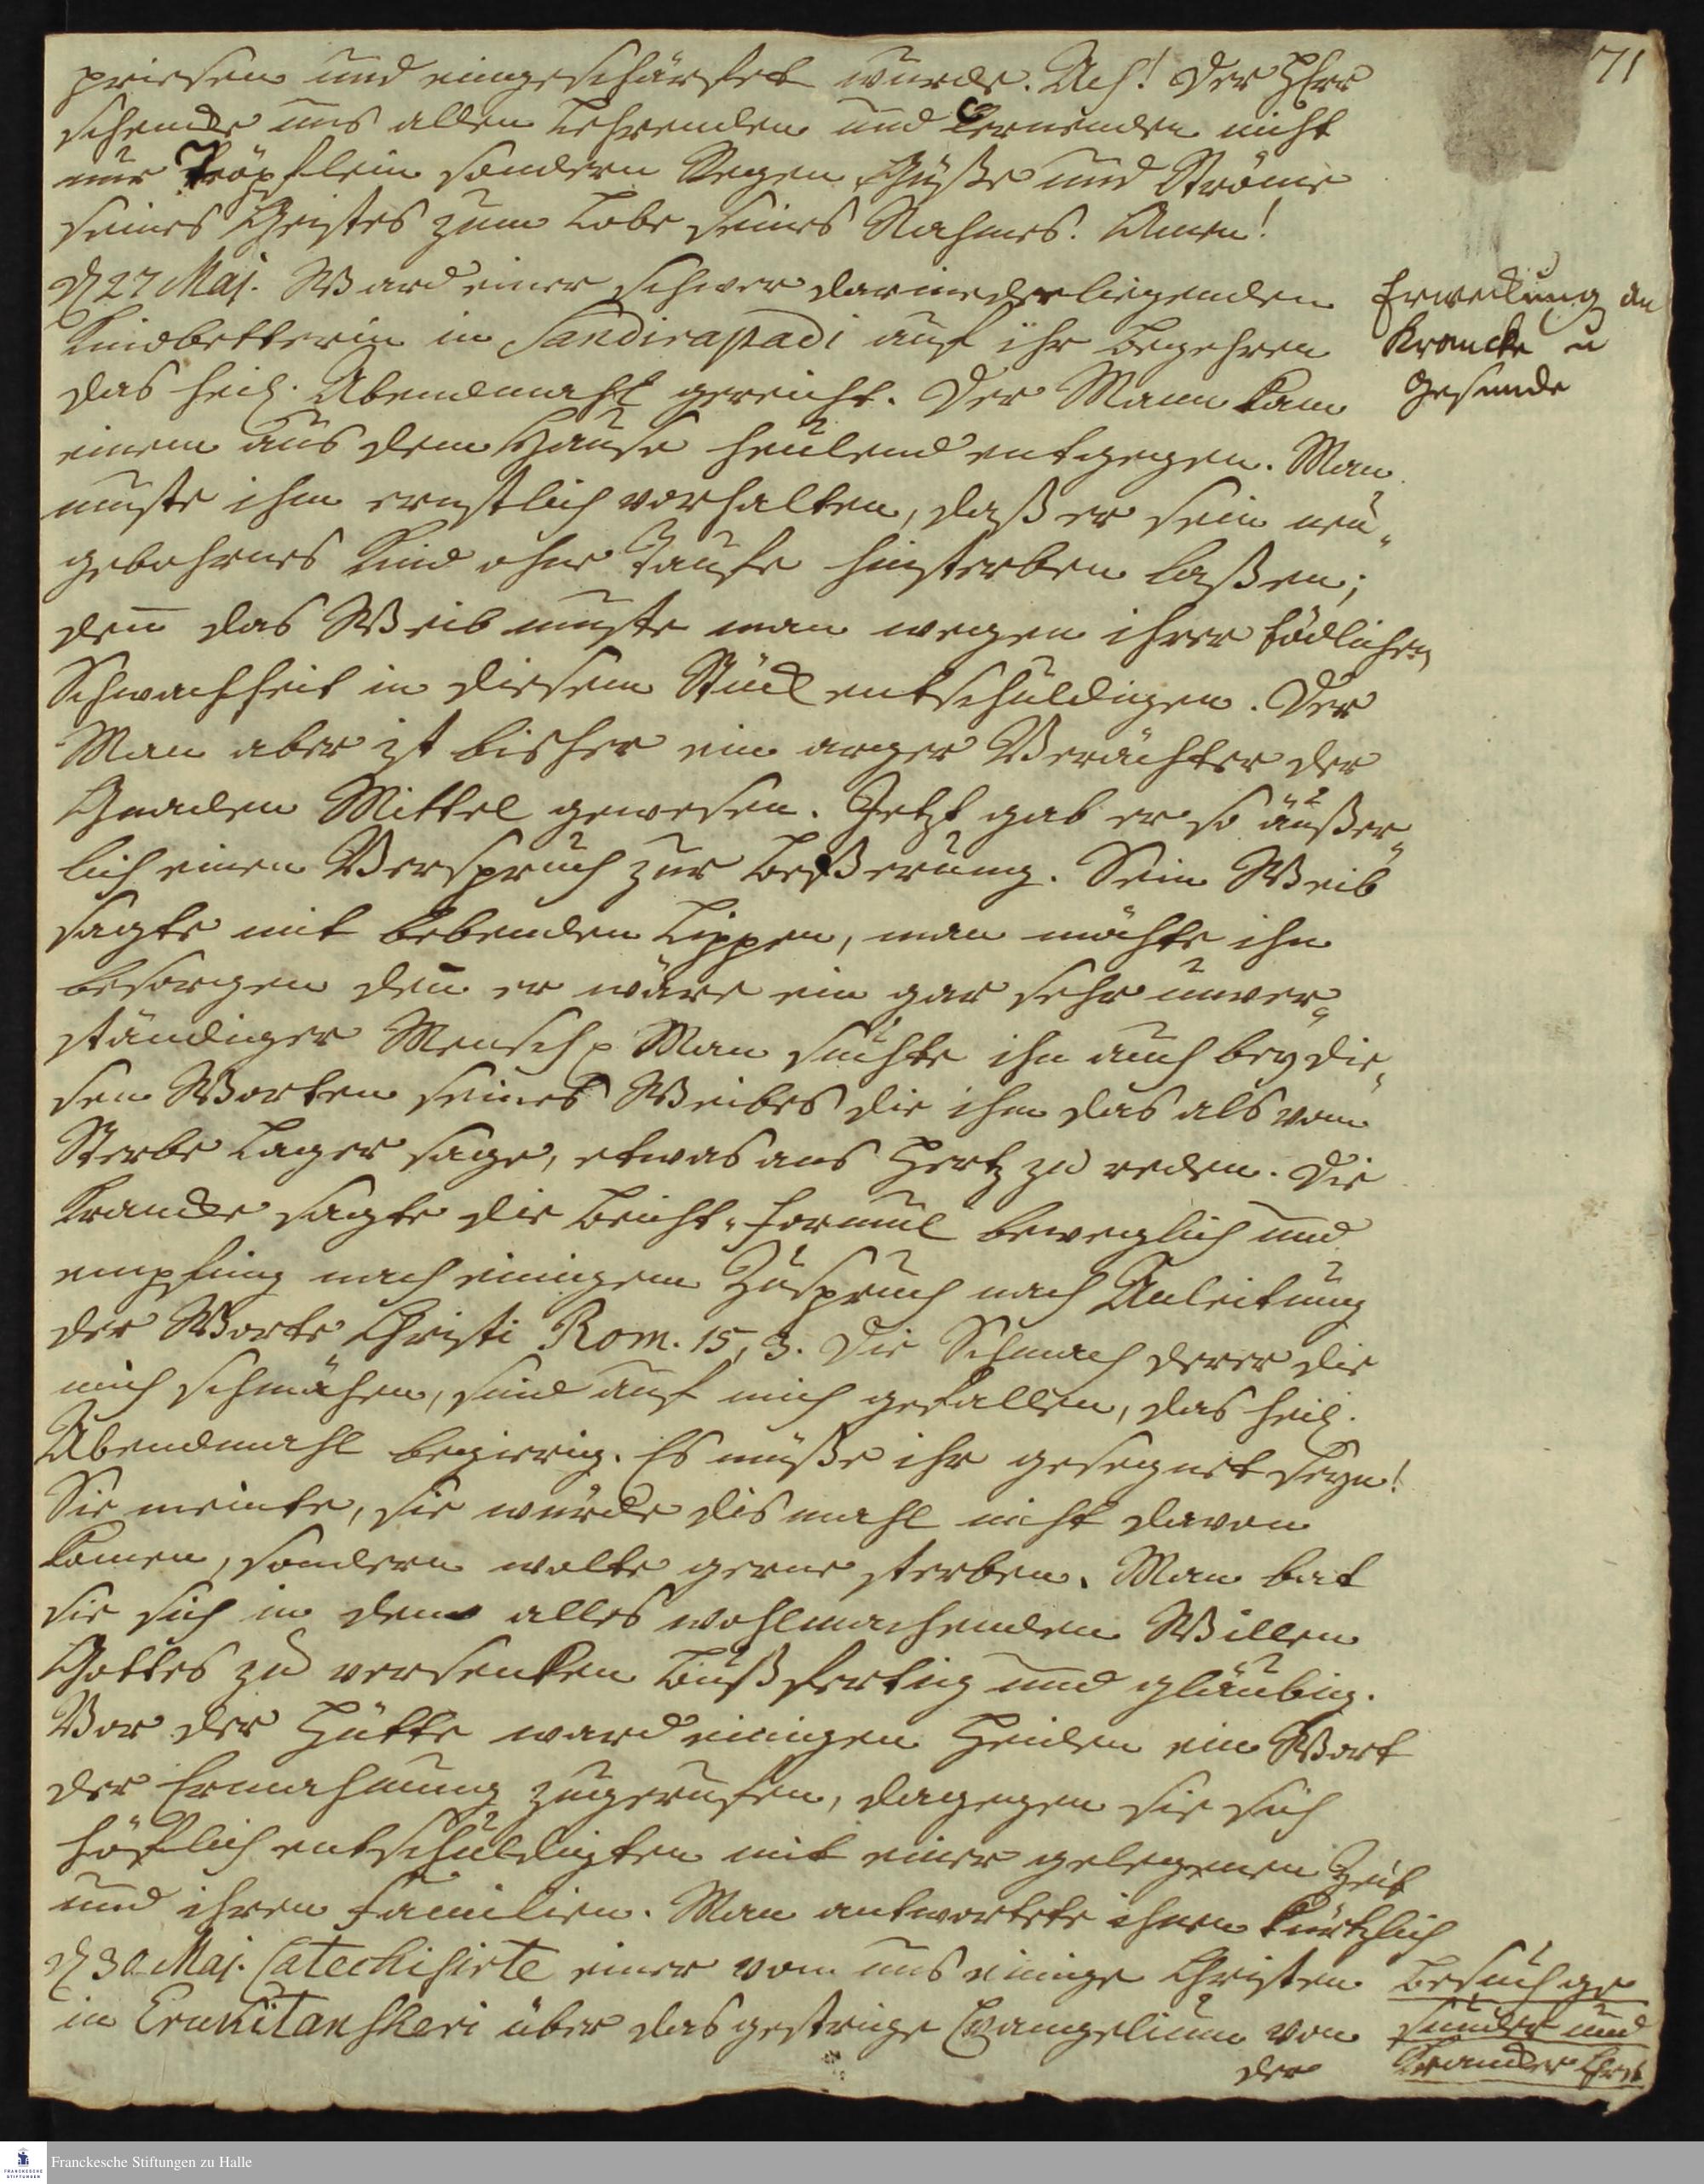 71
priesen und eingeschärfet wurde. Ach! der HErr
schencke uns allen Lehrenden und Lernenden nicht
nur Tröpflein sondern Regen, Güße und Ströme
seines Geistes zum Lobe seines Nahmes. Amen!
d 27 Maj. Ward einer schwer darniederliegenden
Kindbetterin in Sandirapadi auf ihr Begehren
das heil. Abendmahl gereicht. Der Mann kam
einem aus dem Hause heulend entgegen. Man
muste ihm ernstlich vorhalten, daß er sein neu„
gebohrnes Kind ohne Taufe hinsterben laßen;
deñ das Weib muste man wegen ihrer tödlichen
Schwachheit in diesem Stück entschuldigen. Der
Man aber ist bisher ein arger Verächter der
Gnaden Mittel gewesen. Jetzt gab er so äußer„
lich einen Verspruch zur Beßerung. Sein Weib
sagte mit bebenden Lippen, man möchte ihn
besorgen deñ er wäre ein gar sehr unver„
ständiger Mensch. Man suchte ihn auch bey die„
sen Worten seines Weibes die ihm das als vom
Sterbe Lager sage, etwas ans Hertz zu reden. Die
Krancke sagte die Beicht-Formul beweglich und
empfing nach einigem Zuspruch nach Anleitung
der Worte Christi Rom. 15, 3. Die Schmach derer die
mich schmähen, sind auf mich gefallen, das heil.
Abendmahl begierig. Es müße ihr gesegnet seyn!
Sie meinte, sie würde dismahl nicht davon
komen, sondern wolte gerne sterben. Man bat
sie sich in den alles wohlmachenden Willen
Gottes zu versenken bußfertig und gläubig.
Vor der Hütte ward einigen Heiden ein Wort
der Ermahnung zugerufen, dagegen sie sich
höflich entschuldigten mit einer gelegenen Zeit
und ihren Familien. Man antwortete ihnen kürtzlich
d 30 Maj. Catechisirte einer von uns einige Christen
in Erukitanscheri über das gestrige Evangelium von
der
Erweckung an
Krancke u
Gesunde
Besuch ge
sunder und
Krancker Chrst
Franckesche Stiftungen zu Halle
FRANCKESCHE
STIFTUNGEN